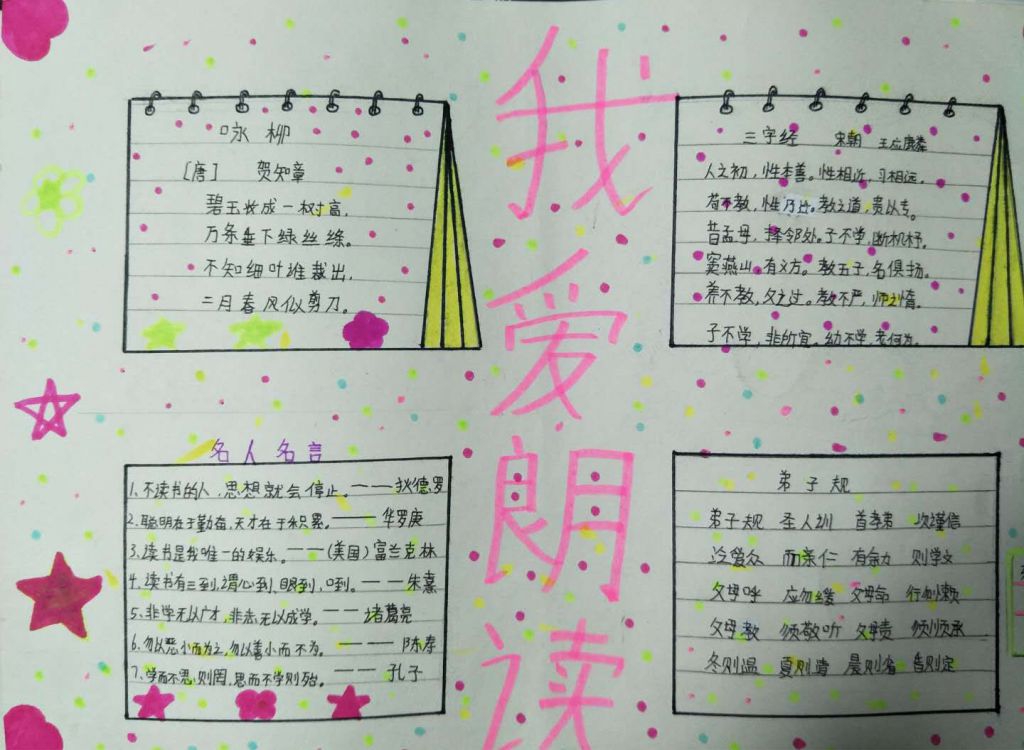 我爱朗读
咏柳
[唐] 贺知章
碧玉妆成一树高,
万条垂下绿丝绦。
不知细叶谁裁出,
二月春风似剪刀。
三字经 宋朝 王应麟
人之初,性本善。性相近,习相远。
苟不教,性乃迁。教之道,贵以专。
昔孟母,择邻处。子不学,断机杼。
窦燕山,有义方。教五子,名俱扬。
养不教,父之过。教不严,师之惰。
子不学,非所宜。幼不学,老何为。
名人名言
1、不读书的人,思想就会停止。——狄德罗
2、聪明在于勤奋,天才在于积累。——华罗庚
3、读书是我唯一的娱乐。——(美国)富兰克林
4、读书有三到,谓心到、眼到,口到。——朱熹
5、非学无以广才,非志无以成学。——诸葛亮
6、勿以恶小而为之,勿以善小而不为。——陈寿
7、学而不思,则罔,思而不学则殆。——孔子
弟子规
弟子规 圣人训 首孝弟 次谨信
泛爱众 而亲仁 有余力 则学文
父母呼 应勿缓 父母命 行勿懒
父母教 须敬听 父母责 须顺承
冬则温 夏则凊 晨则省 昏则定